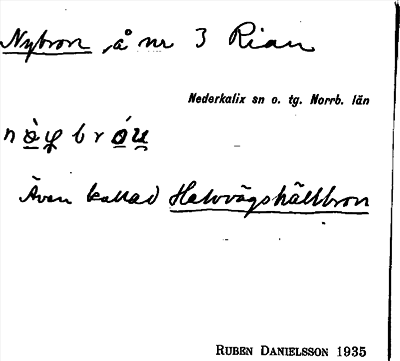 Nybron, å nr 3 Rian
Nederkalix sn o. tg. Norrb. län
nò̱y̱ bró̱u̱
Även kallad Halvvägshällbron
RUBEN DANIELSSON 1935